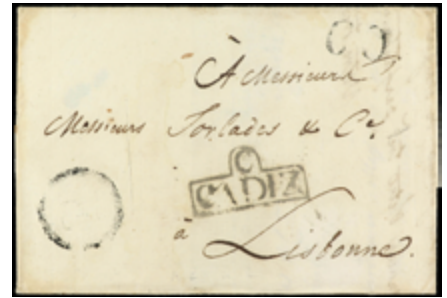 À Messieurs
Messieurs Torlades & Cⁱᵉ.
C
CADIZ
à
Lisbonne.